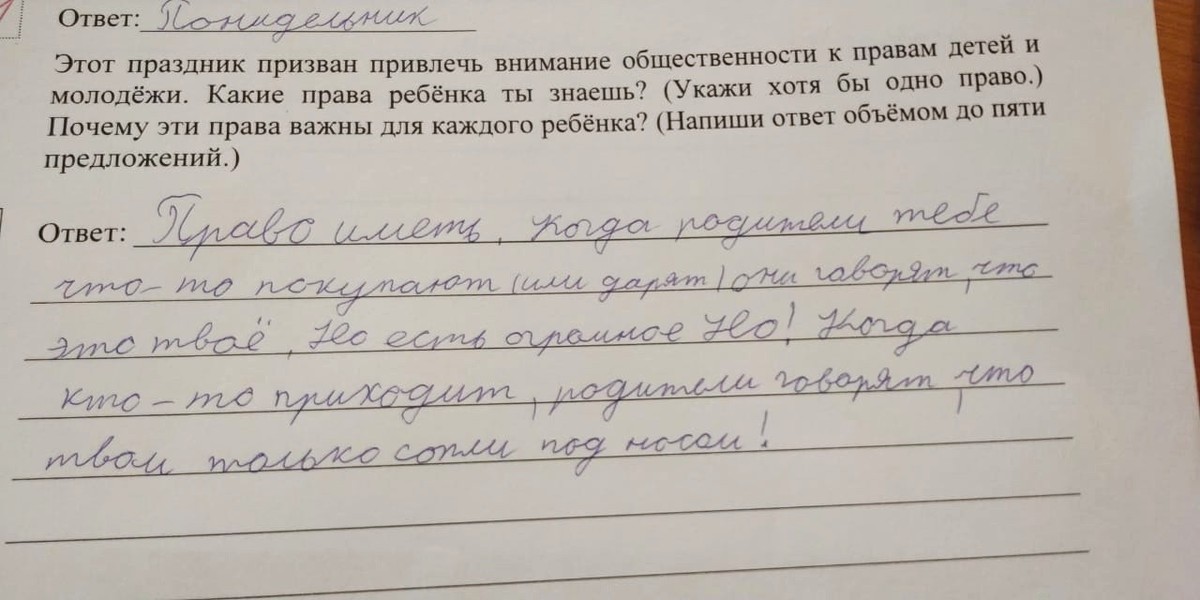 Ответ: Понидельник
Этот праздник призван привлечь внимание общественности к правам детей и
молодёжи. Какие права ребёнка ты знаешь? (Укажи хотя бы одно право.)
Почему эти права важны для каждого ребёнка? (Напиши ответ объёмом до пяти
предложений.)
Ответ: Право иметь, Когда родители тебе
что-то покупают (или дарят) они говорят, что
это твоё, Но есть огромное Но! Когда
кто-то приходит, родители говорят, что
твои только сопли под носом!